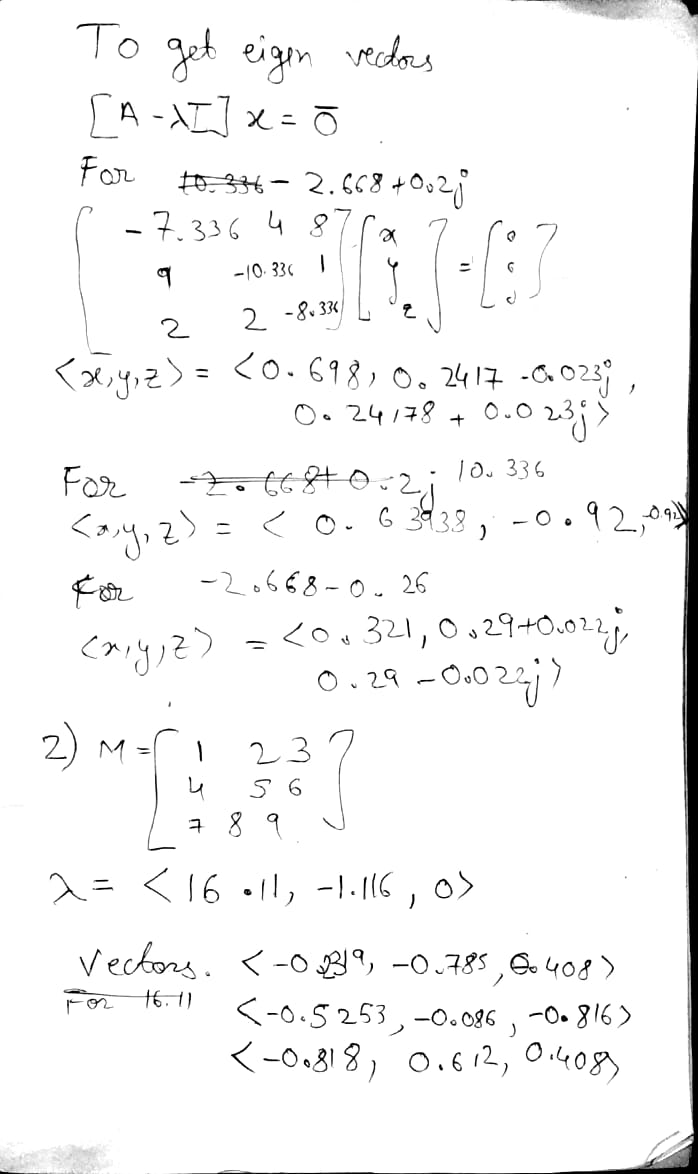 To get eigen vectors
[A - λI] x = ō
For - 2.668 + 0.2j
[ -7.336 4 8 ] [ x ] = [ 0 ]
9 -10.336 1 y
2 2 -8.336 z
<x,y,z> = <0.698, 0.2417 - 0.023j,
0.24178 + 0.023j>
For -2.668+0.2j 10.336
<x,y,z> = < 0.63938, -0.92, -0.92>
For -2.668-0.26
<x,y,z> = <0.321, 0.29+0.022j,
0.29 - 0.022j>
2) M = [ 1 2 3 ]
4 5 6
7 8 9
λ = <16.11, -1.116, 0>
Vectors. <-0.2319, -0.785, 0.408>
For 16.11 <-0.5253, -0.086, -0.816>
<-0.818, 0.612, 0.408>